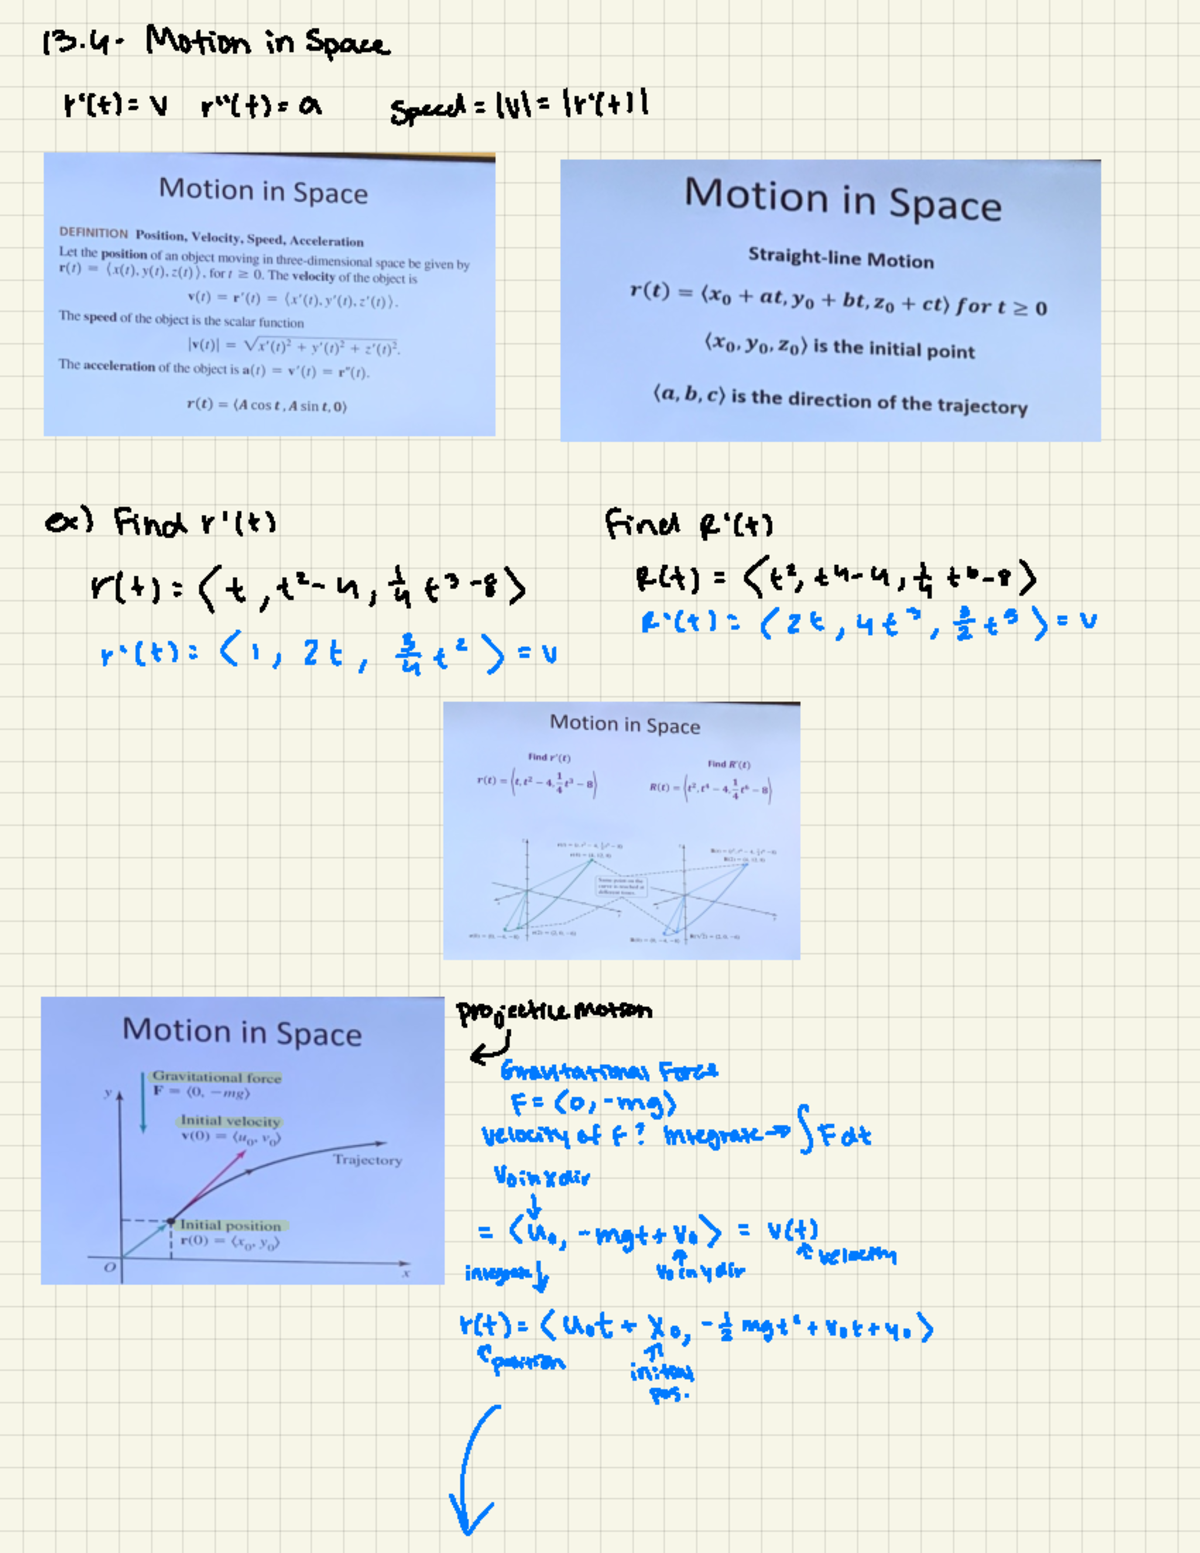 13.4- Motion in Space
r'(t) = v r''(t) = a Speed = |v| = |r'(t)|
Motion in Space
DEFINITION Position, Velocity, Speed, Acceleration
Let the position of an object moving in three-dimensional space be given by
r(t) = ⟨x(t), y(t), z(t)⟩, for t ≥ 0. The velocity of the object is
v(t) = r'(t) = ⟨x'(t), y'(t), z'(t)⟩.
The speed of the object is the scalar function
|v(t)| = √x'(t)² + y'(t)² + z'(t)².
The acceleration of the object is a(t) = v'(t) = r''(t).
r(t) = ⟨A cos t, A sin t, 0⟩
Motion in Space
Straight-line Motion
r(t) = ⟨x₀ + at, y₀ + bt, z₀ + ct⟩ for t ≥ 0
⟨x₀, y₀, z₀⟩ is the initial point
⟨a, b, c⟩ is the direction of the trajectory
ex) Find r'(t)
r(t) = ⟨t, t²-4, 1/4 t³-8⟩
r'(t) = ⟨1, 2t, 3/4 t²⟩ = v
Find R'(t)
R(t) = ⟨t², t⁴-4, 1/4 t⁶-8⟩
R'(t) = ⟨2t, 4t³, 3/2 t⁵⟩ = v
Motion in Space
Find r'(t)
r(t) = ⟨t, t² - 4, 1/4 t³ - 8⟩
Find R'(t)
R(t) = ⟨t², t⁴ - 4, 1/4 t⁶ - 8⟩
Same point on the
curve is reached at
different times.
Motion in Space
y
Gravitational force
F = ⟨0, -mg⟩
Initial velocity
v(0) = ⟨u₀, v₀⟩
Trajectory
Initial position
r(0) = ⟨x₀, y₀⟩
O
x
projectile motion
Gravitational Force
F = ⟨0, -mg⟩
velocity of F? integrate → ∫F dt
V₀ in x dir
= ⟨u₀, -mgt + v₀⟩ = v(t)
velocity
integrate
V₀ in y dir
r(t) = ⟨u₀t + x₀, -1/2 mgt² + v₀t + y₀⟩
position
initial
pos.